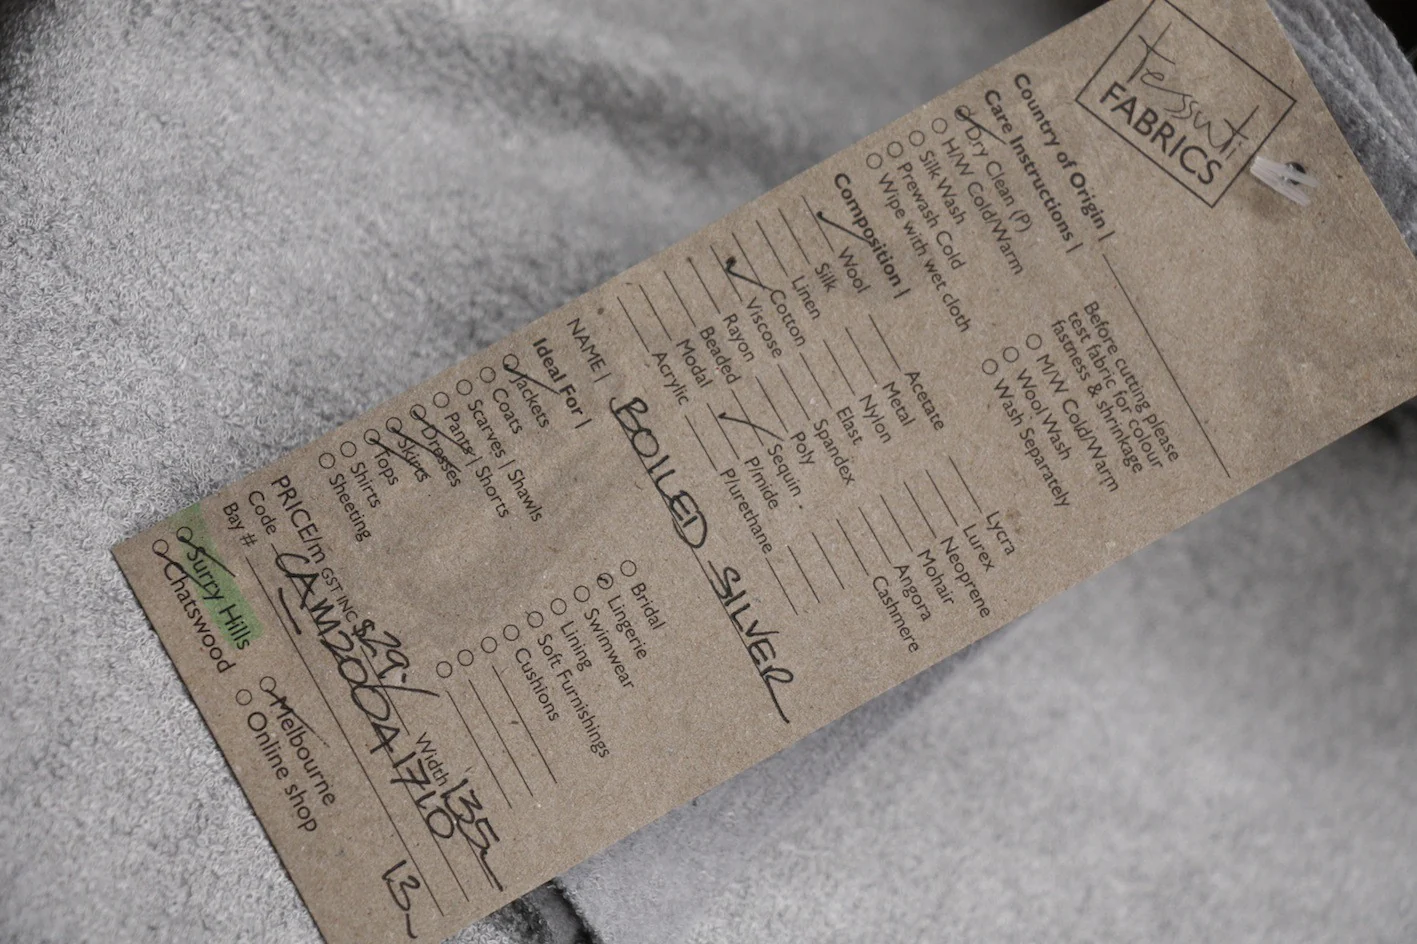 Tessuti
FABRICS
Country of Origin |
Care Instructions |
Dry Clean (P)
H/W Cold/Warm
Silk Wash
Prewash Cold
Wipe with wet cloth
Before cutting please
test fabric for colour
fastness & shrinkage
M/W Cold/Warm
Wool Wash
Wash Separately
Composition |
Wool
Silk
Linen
Cotton
Viscose
Rayon
Beaded
Modal
Acrylic
Acetate
Metal
Nylon
Elast
Spandex
Poly
Sequin
P/mide
P/urethane
Lycra
Lurex
Neoprene
Mohair
Angora
Cashmere
NAME | BOILED SILVER
Ideal For |
Jackets
Coats
Scarves | Shawls
Pants | Shorts
Dresses
Skirts
Tops
Shirts
Sheeting
Bridal
Lingerie
Swimwear
Lining
Soft Furnishings
Cushions
PRICE/m GST INC $29- Width 135
Code CAM200A1710
Bay # 13
Surry Hills
Chatswood
Melbourne
Online shop